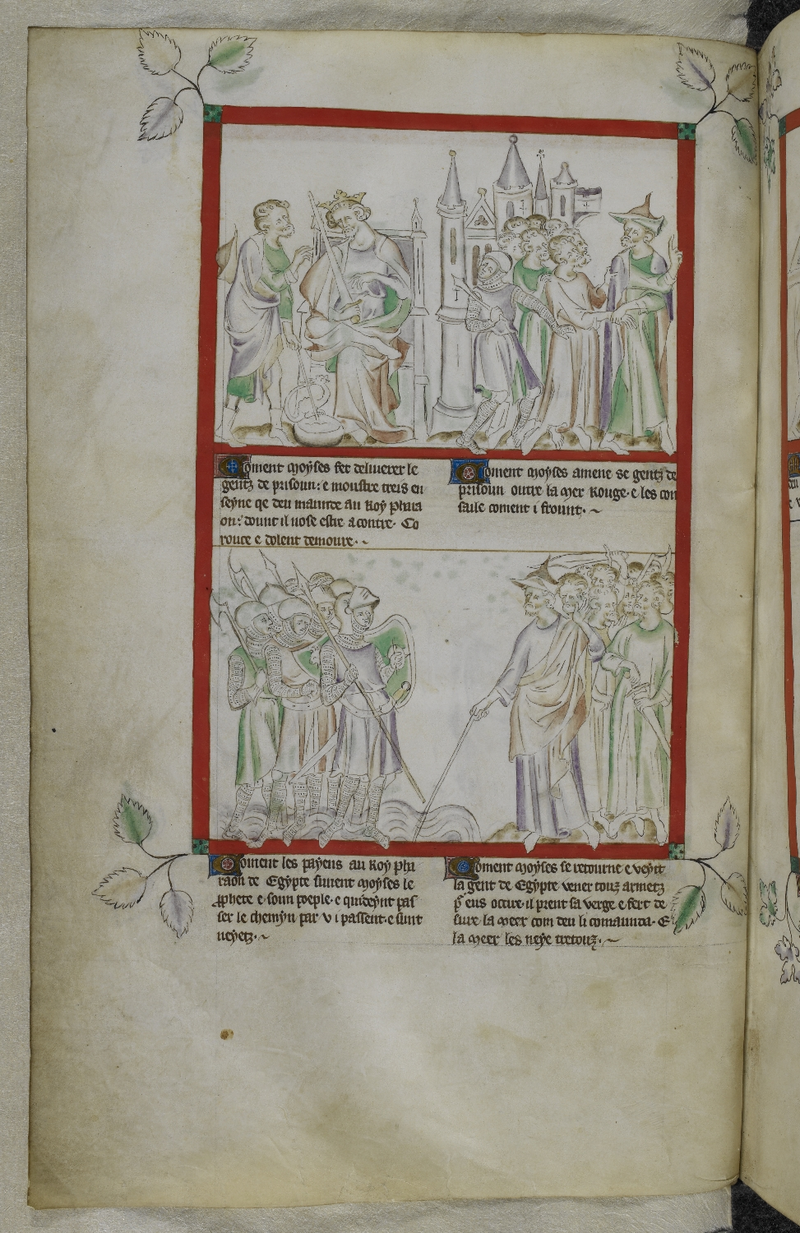 Coment moyses fet deliverer le
gentz de prisoun: e moustre treis en
seyne qe deu maunde au Roy phara
on: dount il nose estre acontre. Co
rouce e dolent demoure.
Coment moyses amene se gentz de
prisoun outre la mer Rouge. e les con
saile coment i frount.
Coment les payens au Roy pha
raon de Egypte siuent moyses le
prophete e soun poeple. e quideynt pas
ser le chemyn par v i passent. e sunt
neyetz.
Coment moyses se retourne e veyit
la gent de Egypte vener touz armetz
pur eus occire. il prent sa verge e fert de
sure la meer com deu li comaunda. E
la meer les neye tretouz.